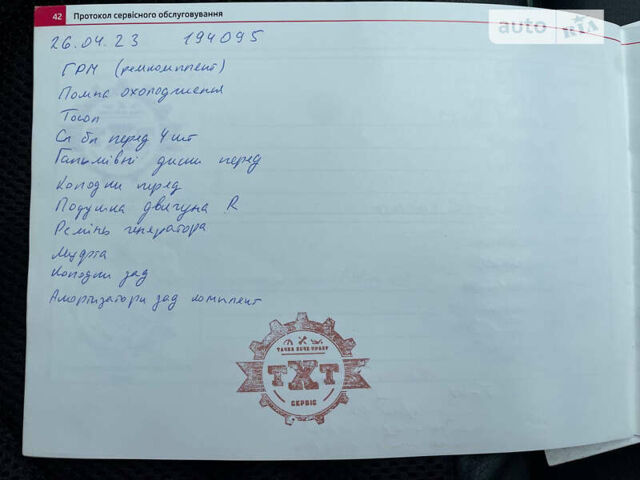 42 Протокол сервісного обслуговування
auto RIA
26.04.23 194095
ГРМ (ремкомплект)
Помпа охолодження
Тосол
Сл бл перед 4 шт
Гальмівні диски перед
Колодки перед
Подушка двигуна R
Ремінь генератора
Муфта
Колодки зад
Амортизатори зад комплект
ТАЧКА ХОЧЕ ТРАХУ
ТХТ
СЕРВІС